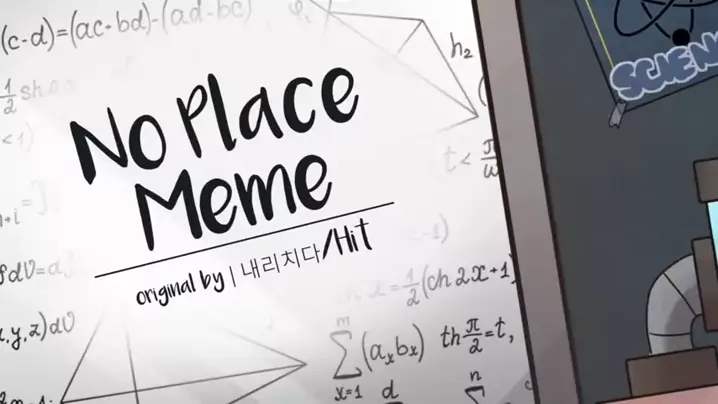 (c-d)=(ac-bd)-(ad-bc)
h₂
1/2 sh
<1)
No Place
Meme
t< π/ω
original by | 내리치다/Hit
-1)
=1/2(ch 2x+1)
x,y,z)dv
m
∑ (aₓbₓ) th π/2=t,
x=1 d n
SCIEN